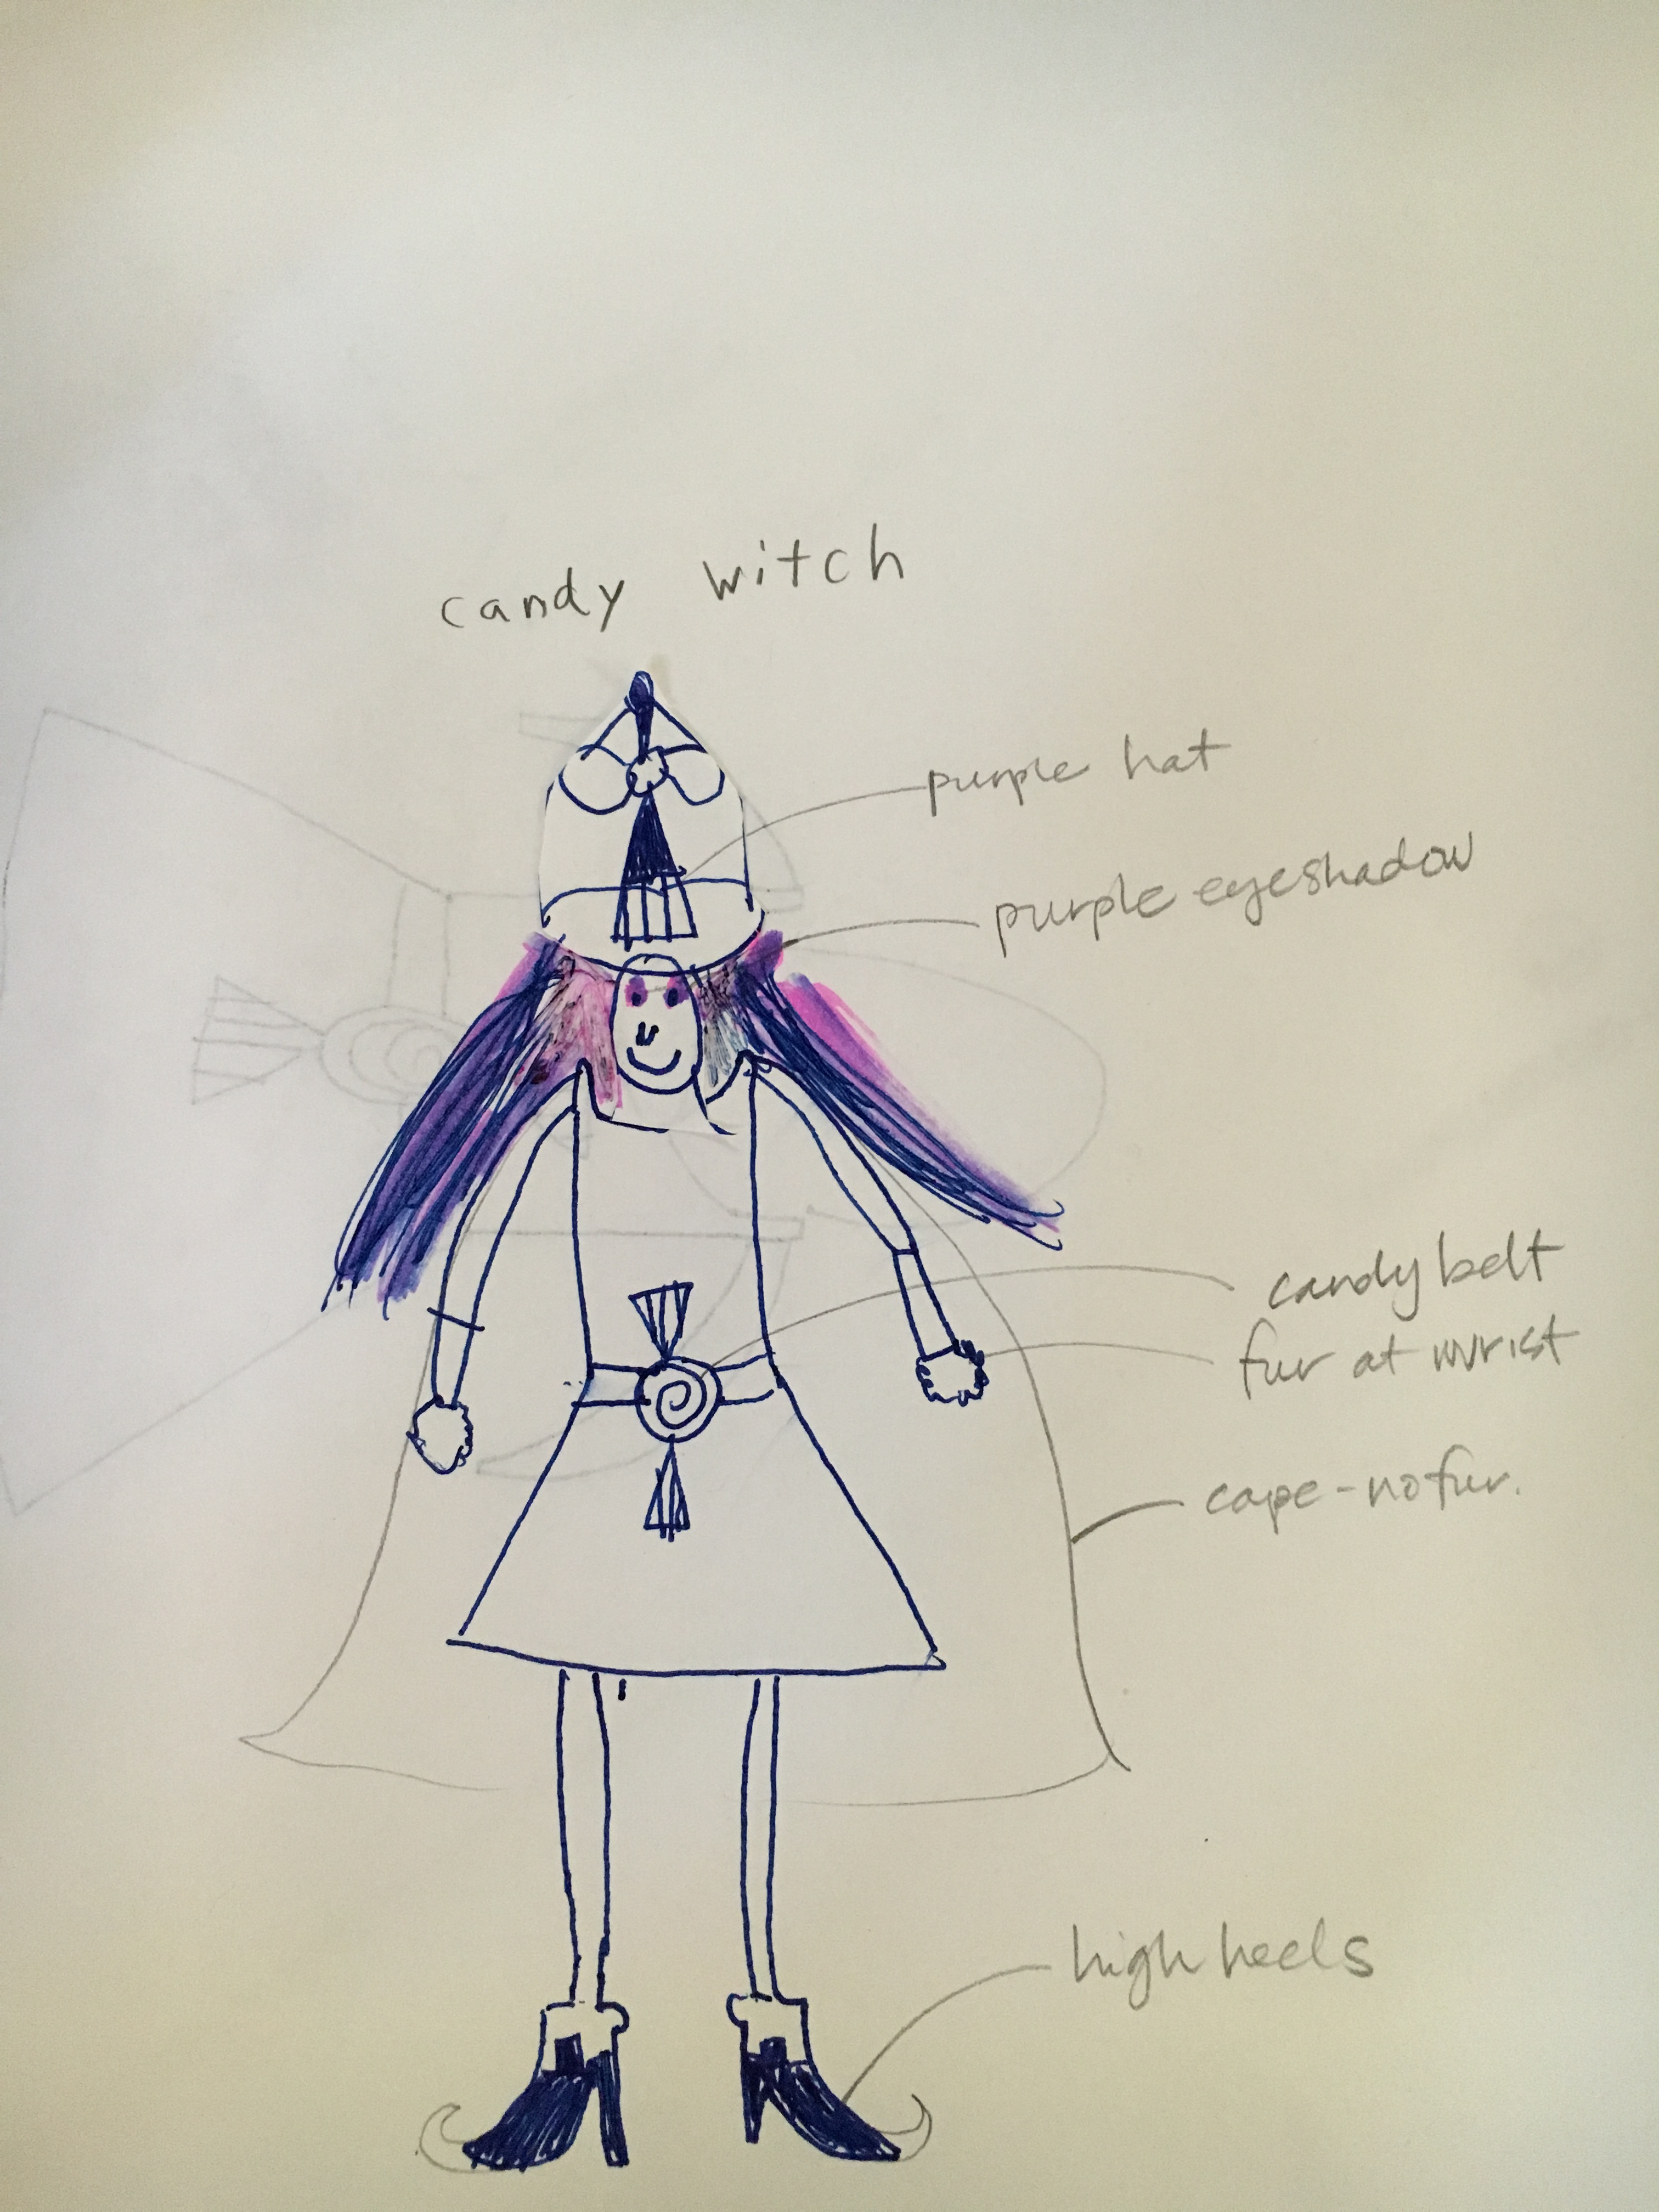 candy witch
purple hat
purple eyeshadow
candy belt
fur at wrist
cape - no fur.
high heels